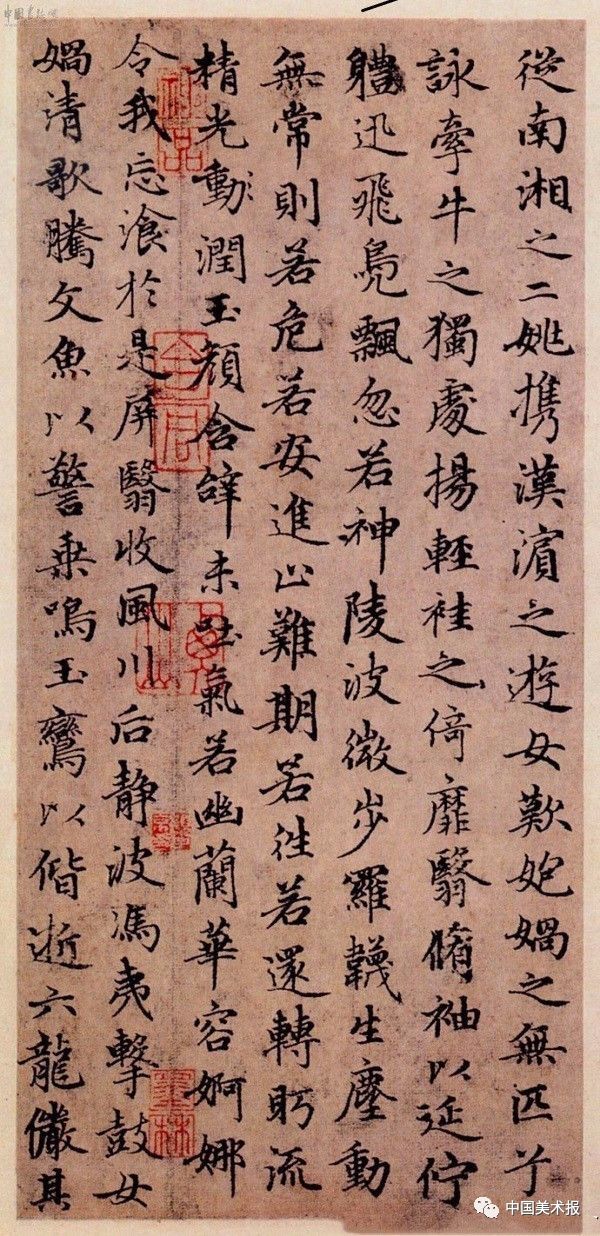 從南湘之二姚携漢濱之遊女歎媧之無匹兮
詠牽牛之獨處揚輕袿之倚靡翳脩袖以延佇
體迅飛鳧飄忽若神陵波微步羅韈生塵動
無常則若危若安進止難期若往若還轉眄流
精光動潤玉顔含辭未吐氣若幽蘭華容婀娜
令我忘飡於是屏翳收風川后静波馮夷擊鼓女
媧清歌騰文魚以警乘鳴玉鸞以偕逝六龍儼其
神品
墨林
中国美术报